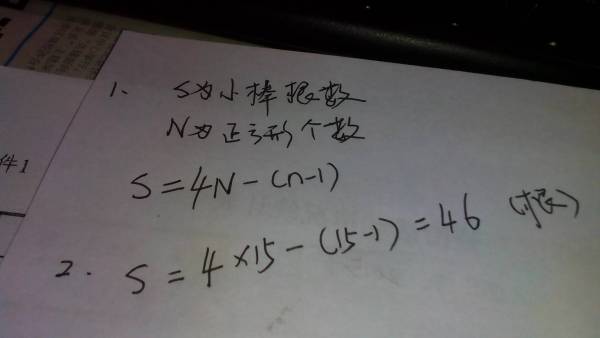 1、 S为小棒根数
N为正方形个数
S=4N-(n-1)
件1
2. S=4×15-(15-1)=46 (根)